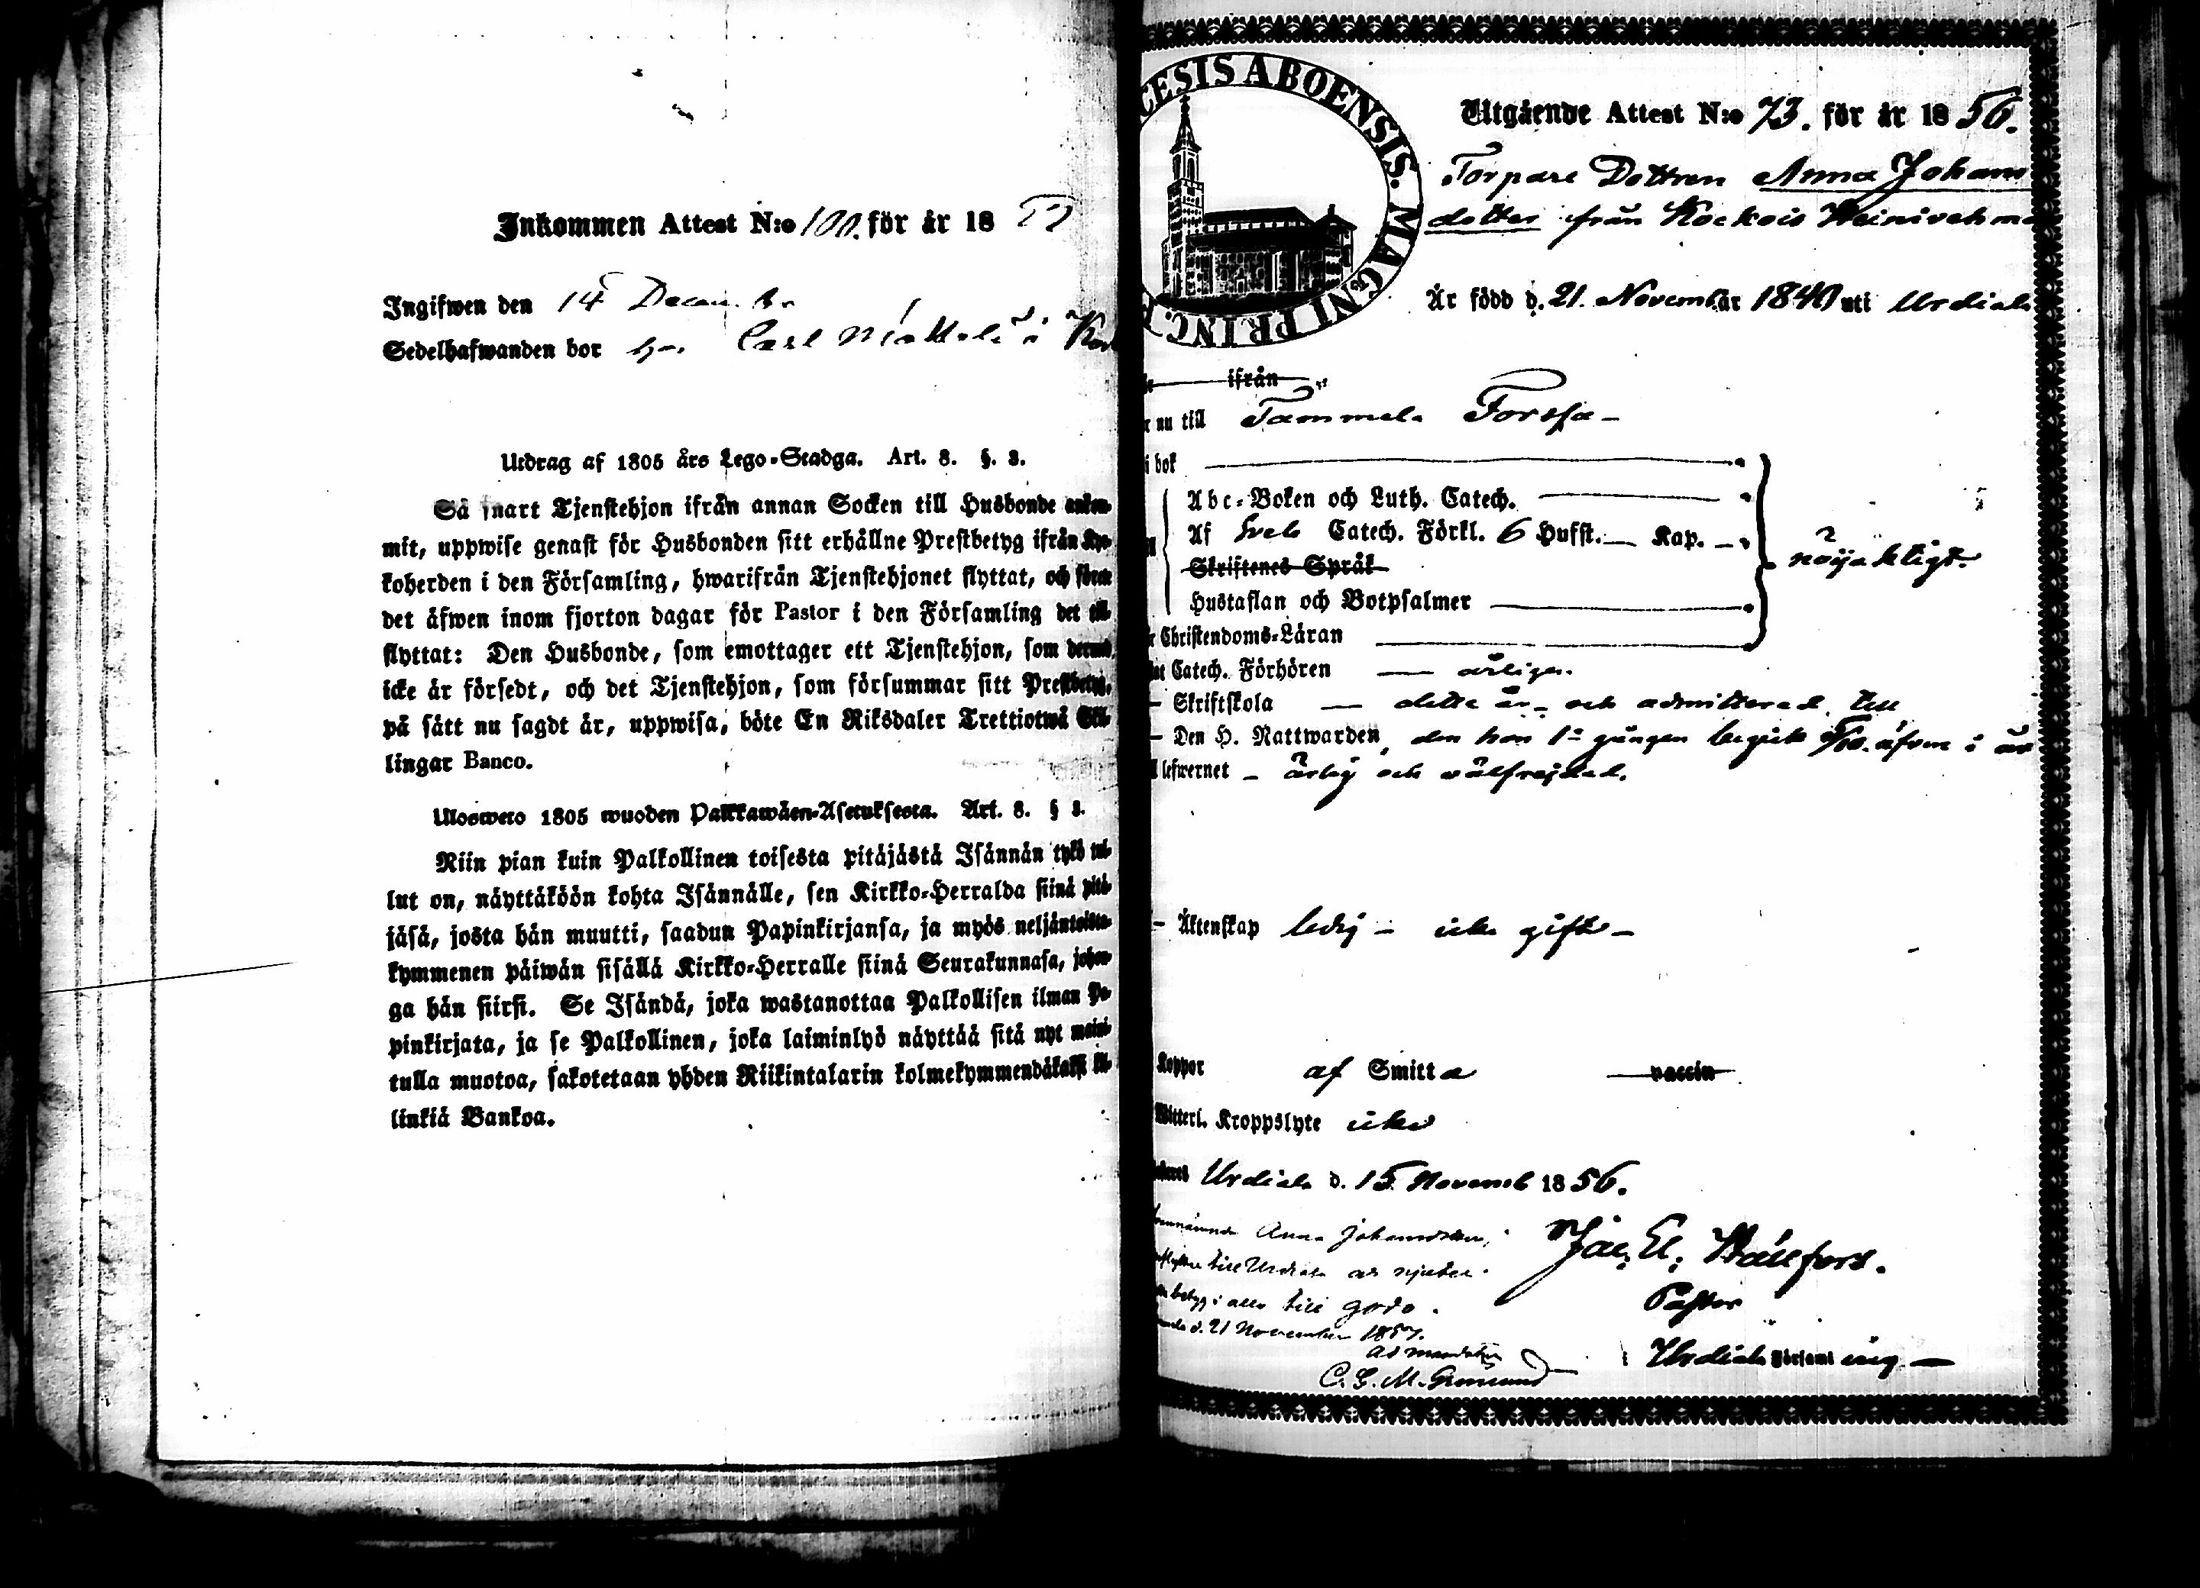 Inkommen Attest N:o 100. för år 18 57
Ingifwen den 14 Decemb.
Sedelhafwanden bor hos Carl Mattels i
Utdrag af 1805 års Lego-Stadga. Art. 8. §. 3.
Så snart Tjenstehjon ifrån annan Socken till Husbonde ankom-
mit, uppwise genast för Husbonden sitt erhållne Prestbetyg ifrån Kyr-
koherden i den Församling, hwarifrån Tjenstehjonet flyttat, och förete
det äfwen inom fjorton dagar för Pastor i den Församling det till-
flyttat: Den Husbonde, som emottager ett Tjenstehjon, som dermed
icke är försedt, och det Tjenstehjon, som försummar sitt Prestbetyg,
på sätt nu sagdt är, uppwisa, böte En Riksdaler Trettiotwå Skil-
lingar Banco.
Ulosweto 1805 wuoden Palkkawäen-Asetuksesta. Art. 8. § 3.
Niin pian kuin Palkollinen toisesta pitäjästä Isännän tykö tul-
lut on, näyttäköön kohta Isännälle, sen Kirkko-Herralda siinä pitä-
jäsä, josta hän muutti, saadun Papinkirjansa, ja myös neljäntoista-
kymmenen päiwän sisällä Kirkko-Herralle siinä Seurakunnasa, johon-
ga hän siirsi. Se Isändä, joka wastanottaa Palkollisen ilman Pa-
pinkirjata, ja se Palkollinen, joka laiminlyö näyttää sitä nyt maini-
tulla muotoa, sakotetaan yhden Riikintalarin kolmekymmendäkaksi kil-
linkiä Bankoa.
CESIS ABOENSIS. MAGNI PRINC. F
Utgående Attest N:o 73. för år 1856.
Torpare Dottren Anna Johans
dotter från Kockois Heinivehma
Är född d. 21. November 1840 uti Urdiala
ifrån
nu till Tammela Forssa
i bok
Abc-Boken och Luth. Catech.
Af Sveb Catech. Förkl. 6 Hufst. Kap.
nöijaktigt.
Skriftenes Språk
Hustaflan och Botpsalmer
Christendoms-Läran
Catech. Förhören årligen.
Skriftskola detta år och admitterad till
Den H. Nattwarden, den hon 1:a gången begick äfven i år
lefwernet ärlig och välfrejdad.
Äktenskap ledig icke gift
Koppor af Smitta vaccin
Witterl. Kroppslyte icke
Urdiala d. 15 Novemb 1856.
Anna Johansdotter,
till Urdiala
betyg i allo till godo.
d. 21 November 1857.
ad mandatum
C. G. M.
Jac. El. Hällfors.
Pastor
i Urdiala Församling